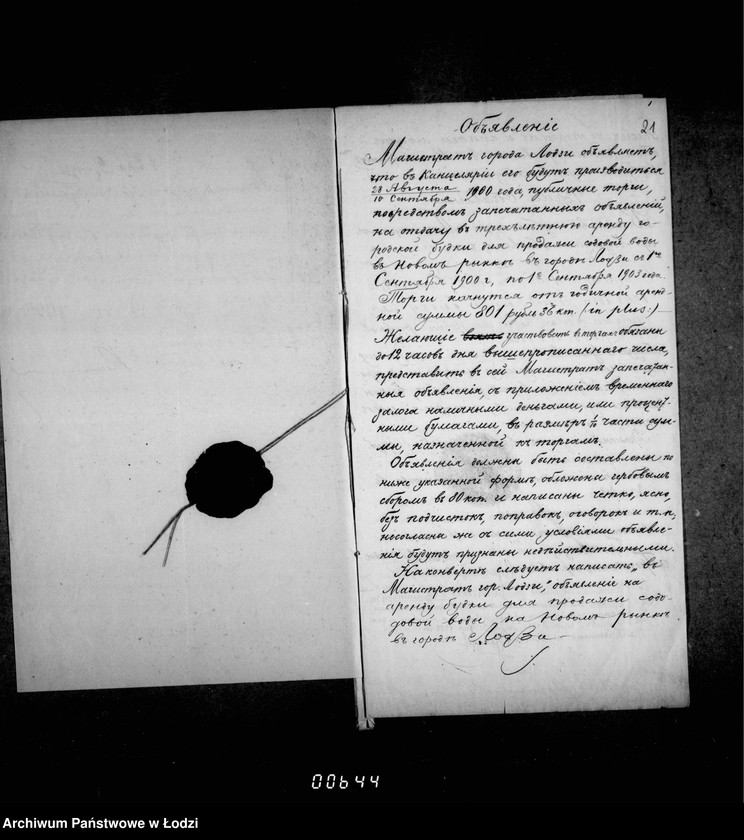 21
Объявленіе
Магистратъ города Лодзи объявляетъ,
что въ Канцеляріи его будутъ производиться
28 Августа
10 Сентября 1900 года, публичные торги,
посредствомъ запечатанныхъ объявленій,
на отдачу въ трехлѣтнюю аренду го-
родской будки для продажи содовой воды
въ Новомъ рынкѣ въ городѣ Лодзи съ 1го
Сентября 1900 г, по 1е Сентября 1903 года.
Торги начнутся отъ годичной аренд-
ной суммы 801 рубль 36 коп. (in plus:)
Желающіе участвовать в торгахъ обязаны
до 12 часовъ дня вышепрописаннаго числа,
представить въ сей Магистратъ запечатан-
ныя объявленія, съ приложеніемъ временнаго
залога наличными деньгами, или процент-
ными бумагами, въ размѣрѣ 1/10 части сум-
мы, назначенной къ торгамъ.
Объявленія должны быть составлены по
ниже указанной формѣ, обложены гербовымъ
сборомъ въ 80 коп. и написаны четко, ясно,
безъ подчистокъ, поправокъ, оговорокъ и т. п,
несогласныя же съ сими условіями объявле-
нія будутъ признаны недѣйствительными.
На конвертѣ слѣдуетъ написать „въ
Магистратъ гор. Лодзи," объявленіе на
аренду будки для продажи содо-
довой воды на Новомъ рынкѣ
въ городѣ Лодзи
00644
Archiwum Państwowe w Łodzi